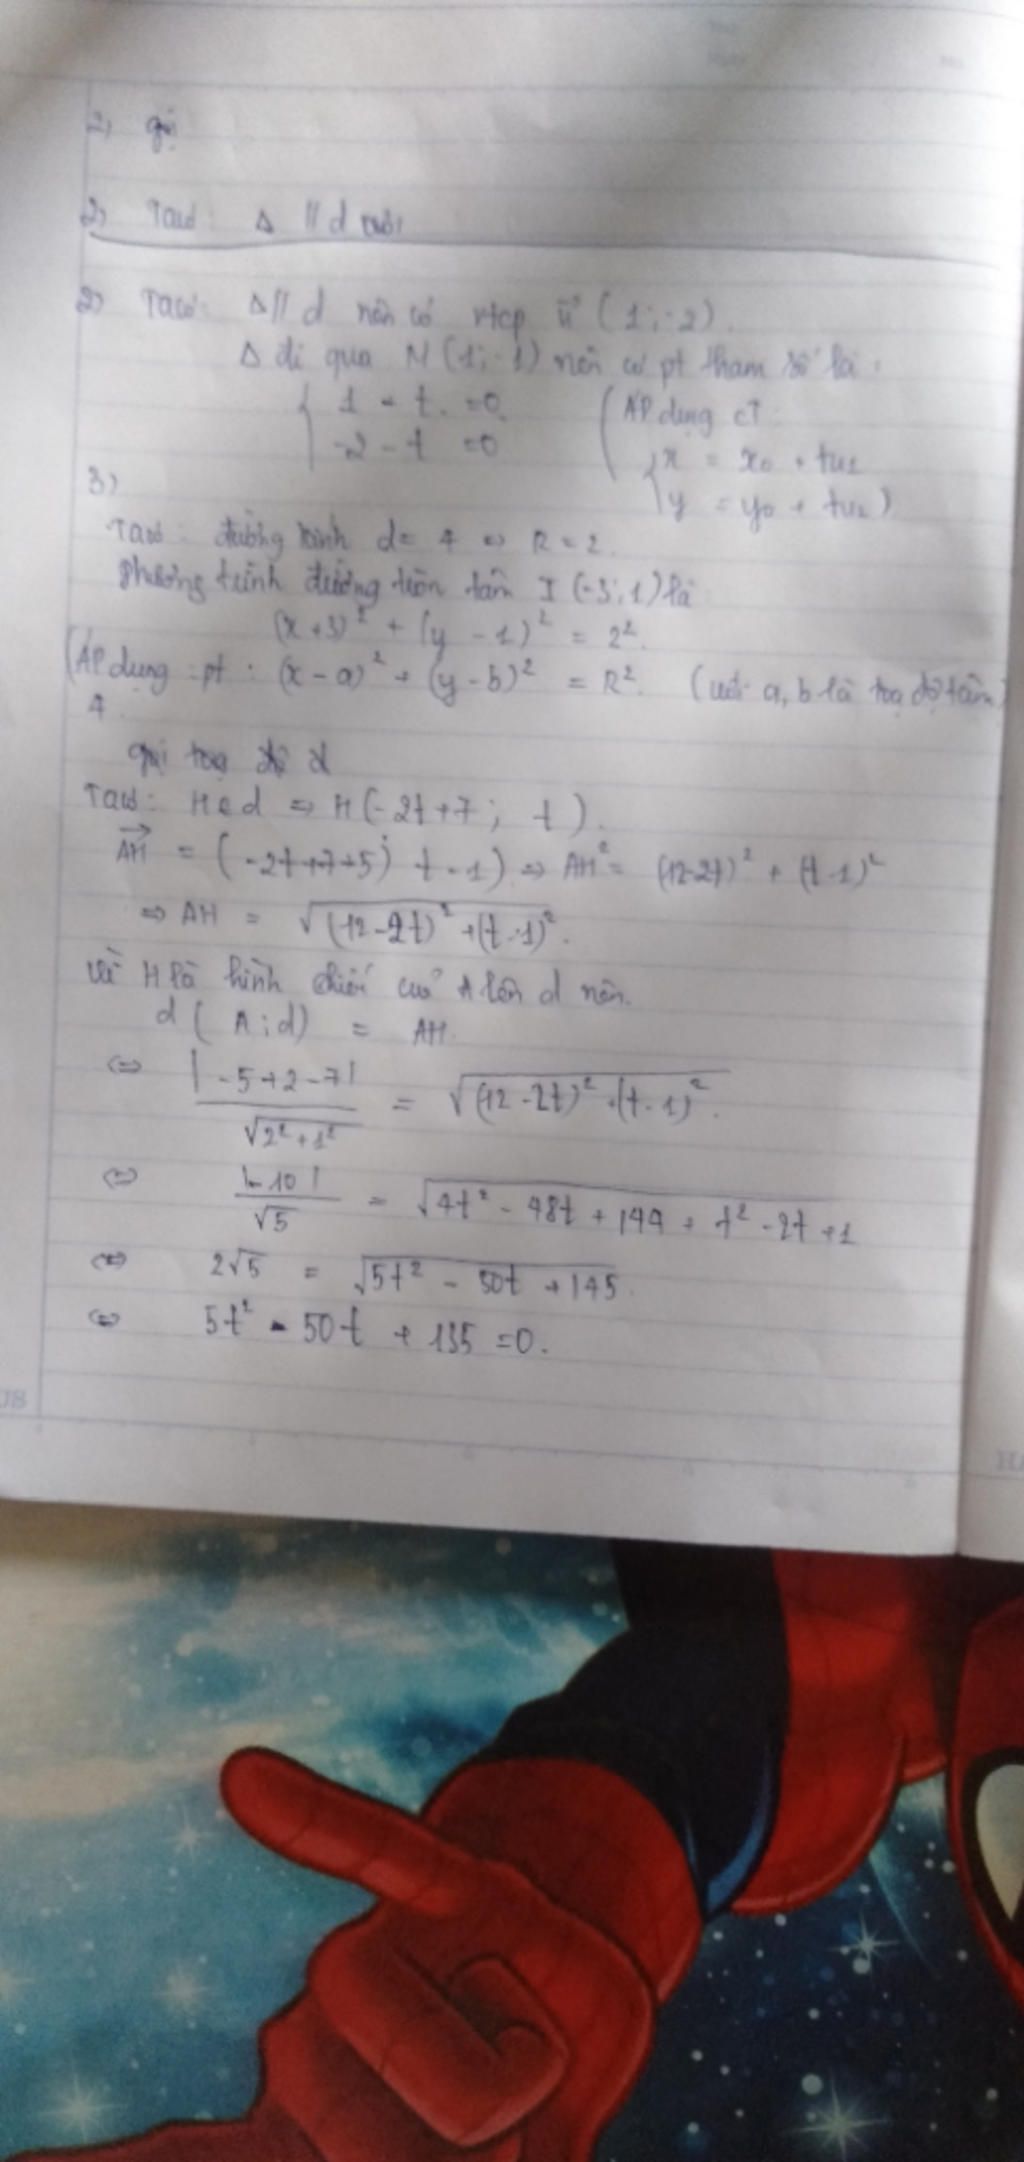 2) gọi
2) Taco: Δ // d
2) Taco: Δ // d nên có vtcp u⃗ (1; -2).
Δ đi qua N (1; -1) nên có pt tham số là:
{ 1 - t = 0
-2 - t = 0
(ÁP dụng CT:
{ x = x₀ + tu₁
y = y₀ + tu₂)
3)
Taco: đường kính d = 4 ⇔ R = 2.
Phương trình đường tròn tâm I (-3; 1) là
(x + 3)² + (y - 1)² = 2².
(ÁP dụng : pt : (x - a)² + (y - b)² = R². (với a, b là toạ độ tâm)
4
gọi toạ độ d
Taco: H ∈ d ⇒ H (-2t + 7 ; t).
AH⃗ = (-2t + 7 + 5 ; t - 1) ⇒ AH² = (12 - 2t)² + (t - 1)²
⇒ AH = √((12 - 2t)² + (t - 1)²).
Vì H là hình chiếu của A lên d nên.
d (A; d) = AH.
⇔ |-5 + 2 - 7| / √(2² + 1²) = √((12 - 2t)² + (t - 1)²).
⇔ |-10| / √5 = √(4t² - 48t + 144 + t² - 2t + 1)
⇔ 2√5 = √(5t² - 50t + 145).
⇔ 5t² - 50t + 135 = 0.